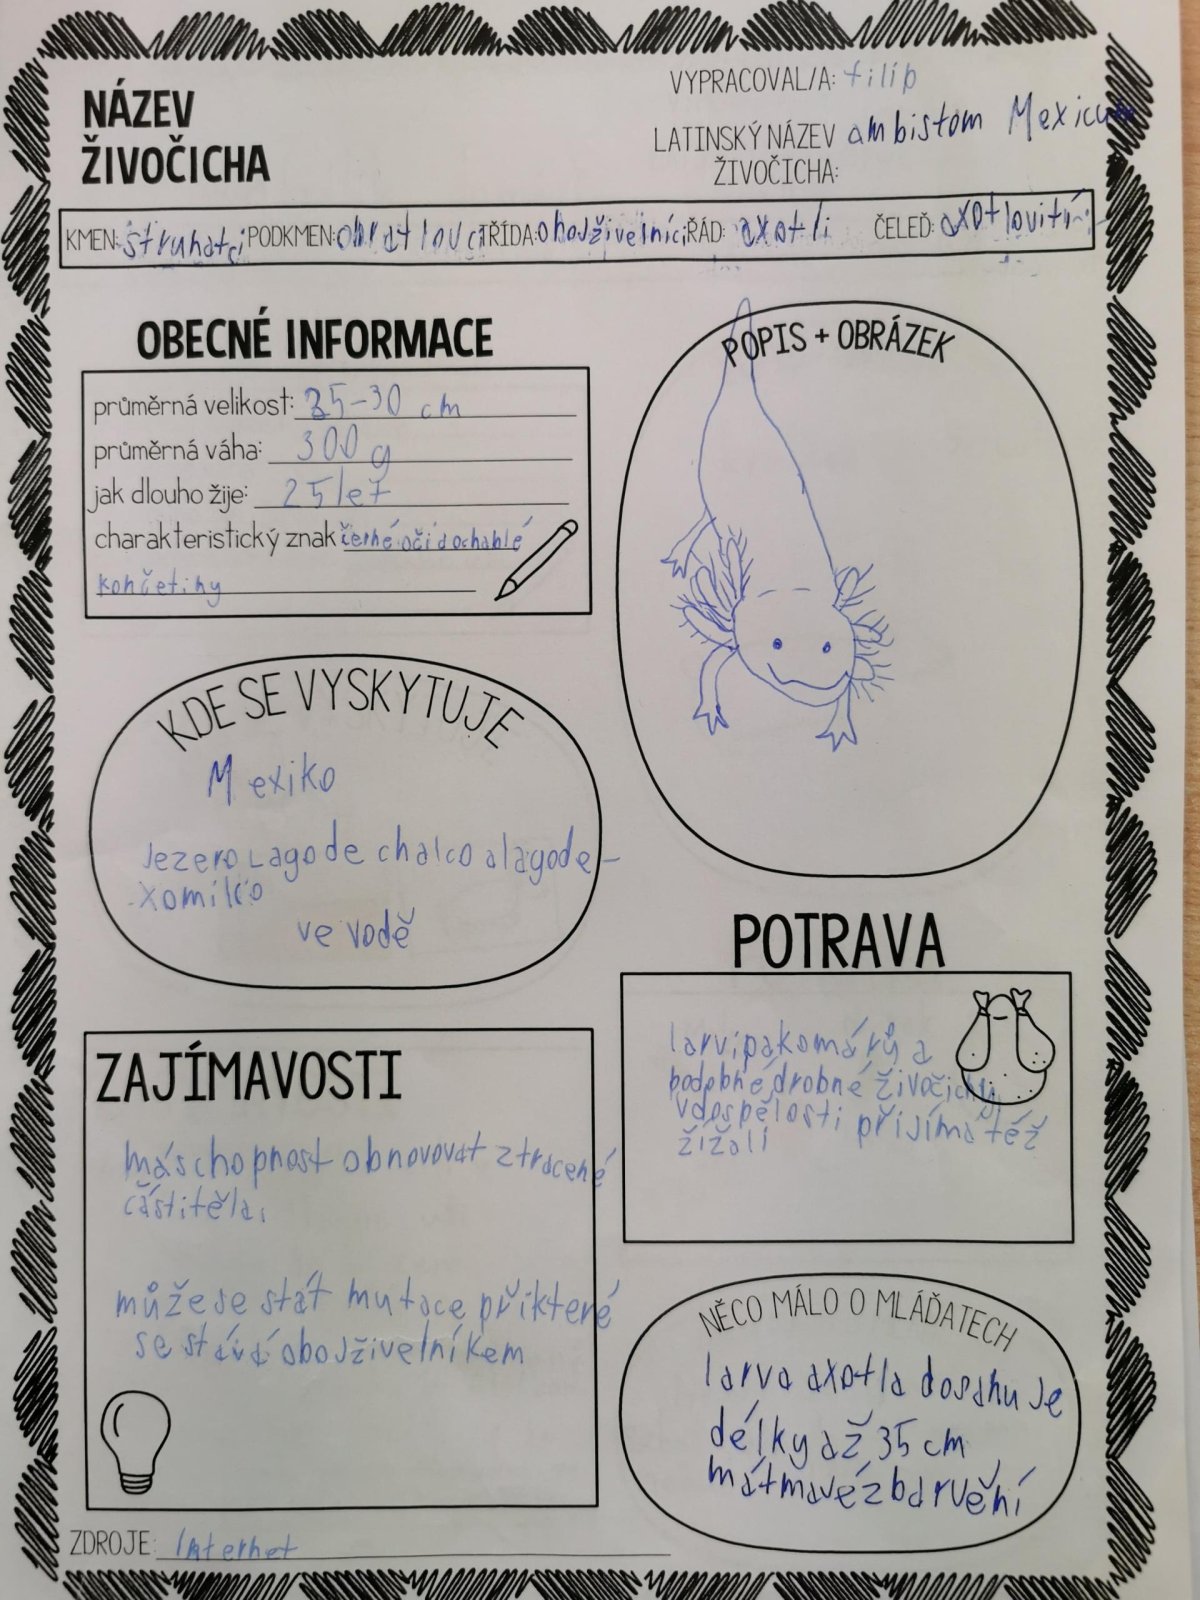 NÁZEV
ŽIVOČICHA
VYPRACOVAL/A: filip
LATINSKÝ NÁZEV ambistom Mexicum
ŽIVOČICHA:
KMEN: struhatci PODKMEN: obratlovci TŘÍDA: obojživelníci ŘÁD: axotli ČELEĎ: axotlovití
OBECNÉ INFORMACE
průměrná velikost: 25-30 cm
průměrná váha: 300 g
jak dlouho žije: 25 let
charakteristický znak černé oči dochablé
končetiny
POPIS + OBRÁZEK
KDE SE VYSKYTUJE
Mexiko
Jezero Lago de chalco a lagode-
xomilco
ve vodě
POTRAVA
larvi pakomárů a
podobné drobné živočichy
v dospělosti příjímá též
žížali
ZAJÍMAVOSTI
má schopnost obnovovat ztracené
části těla.
může se stát mutace při které
se stává obojživelníkem
NĚCO MÁLO O MLÁĎATECH
larva axotla dosahuje
délky až 35 cm
má tmavé zbarvení
ZDROJE: Internet